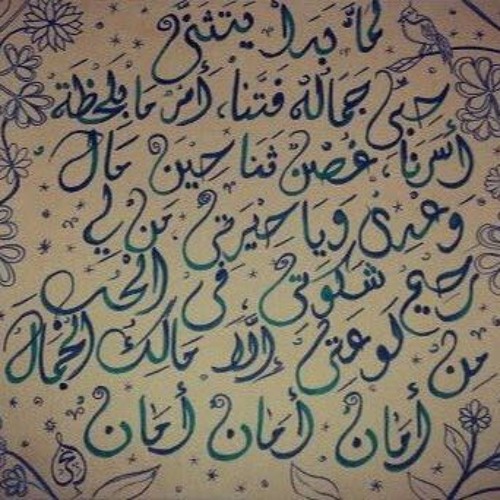 لمَّا بَدَا يَتَثَنَّى
حِبِّي جَمَالُهُ فَتَنَا، أَمْرُ مَا بِلَحْظَة
أَسَرَنَا، غُصْنٌ ثَنَا حِينَ مَال
وَعْدِي وَيَا حِيْرَتِي مَن لِي
رَحِيمُ شَكْوَتِي، فِي الْحُبِّ
مِن لَوْعَتِي إِلَّا مَالِكُ الْجَمَال
أَمَان أَمَان أَمَان